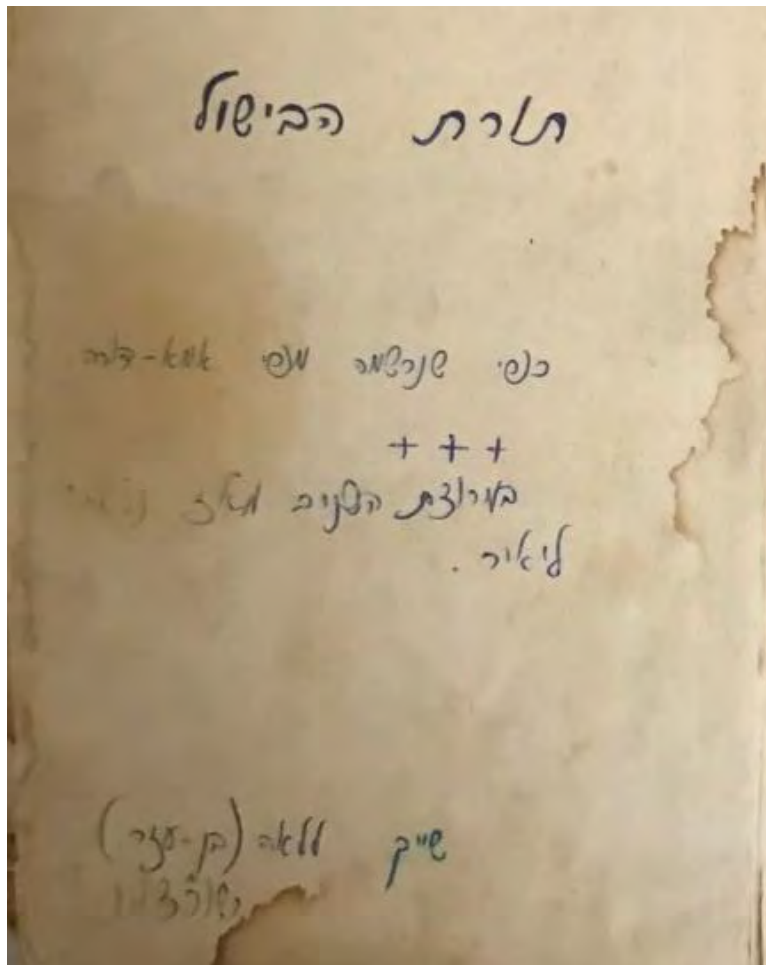 תורת הבישול
כפי שנרשמה מפי אמא-דורה
+ + +
במרוצת השנים מאז
ליאיר.
שייך ללאה (בן-עזר)